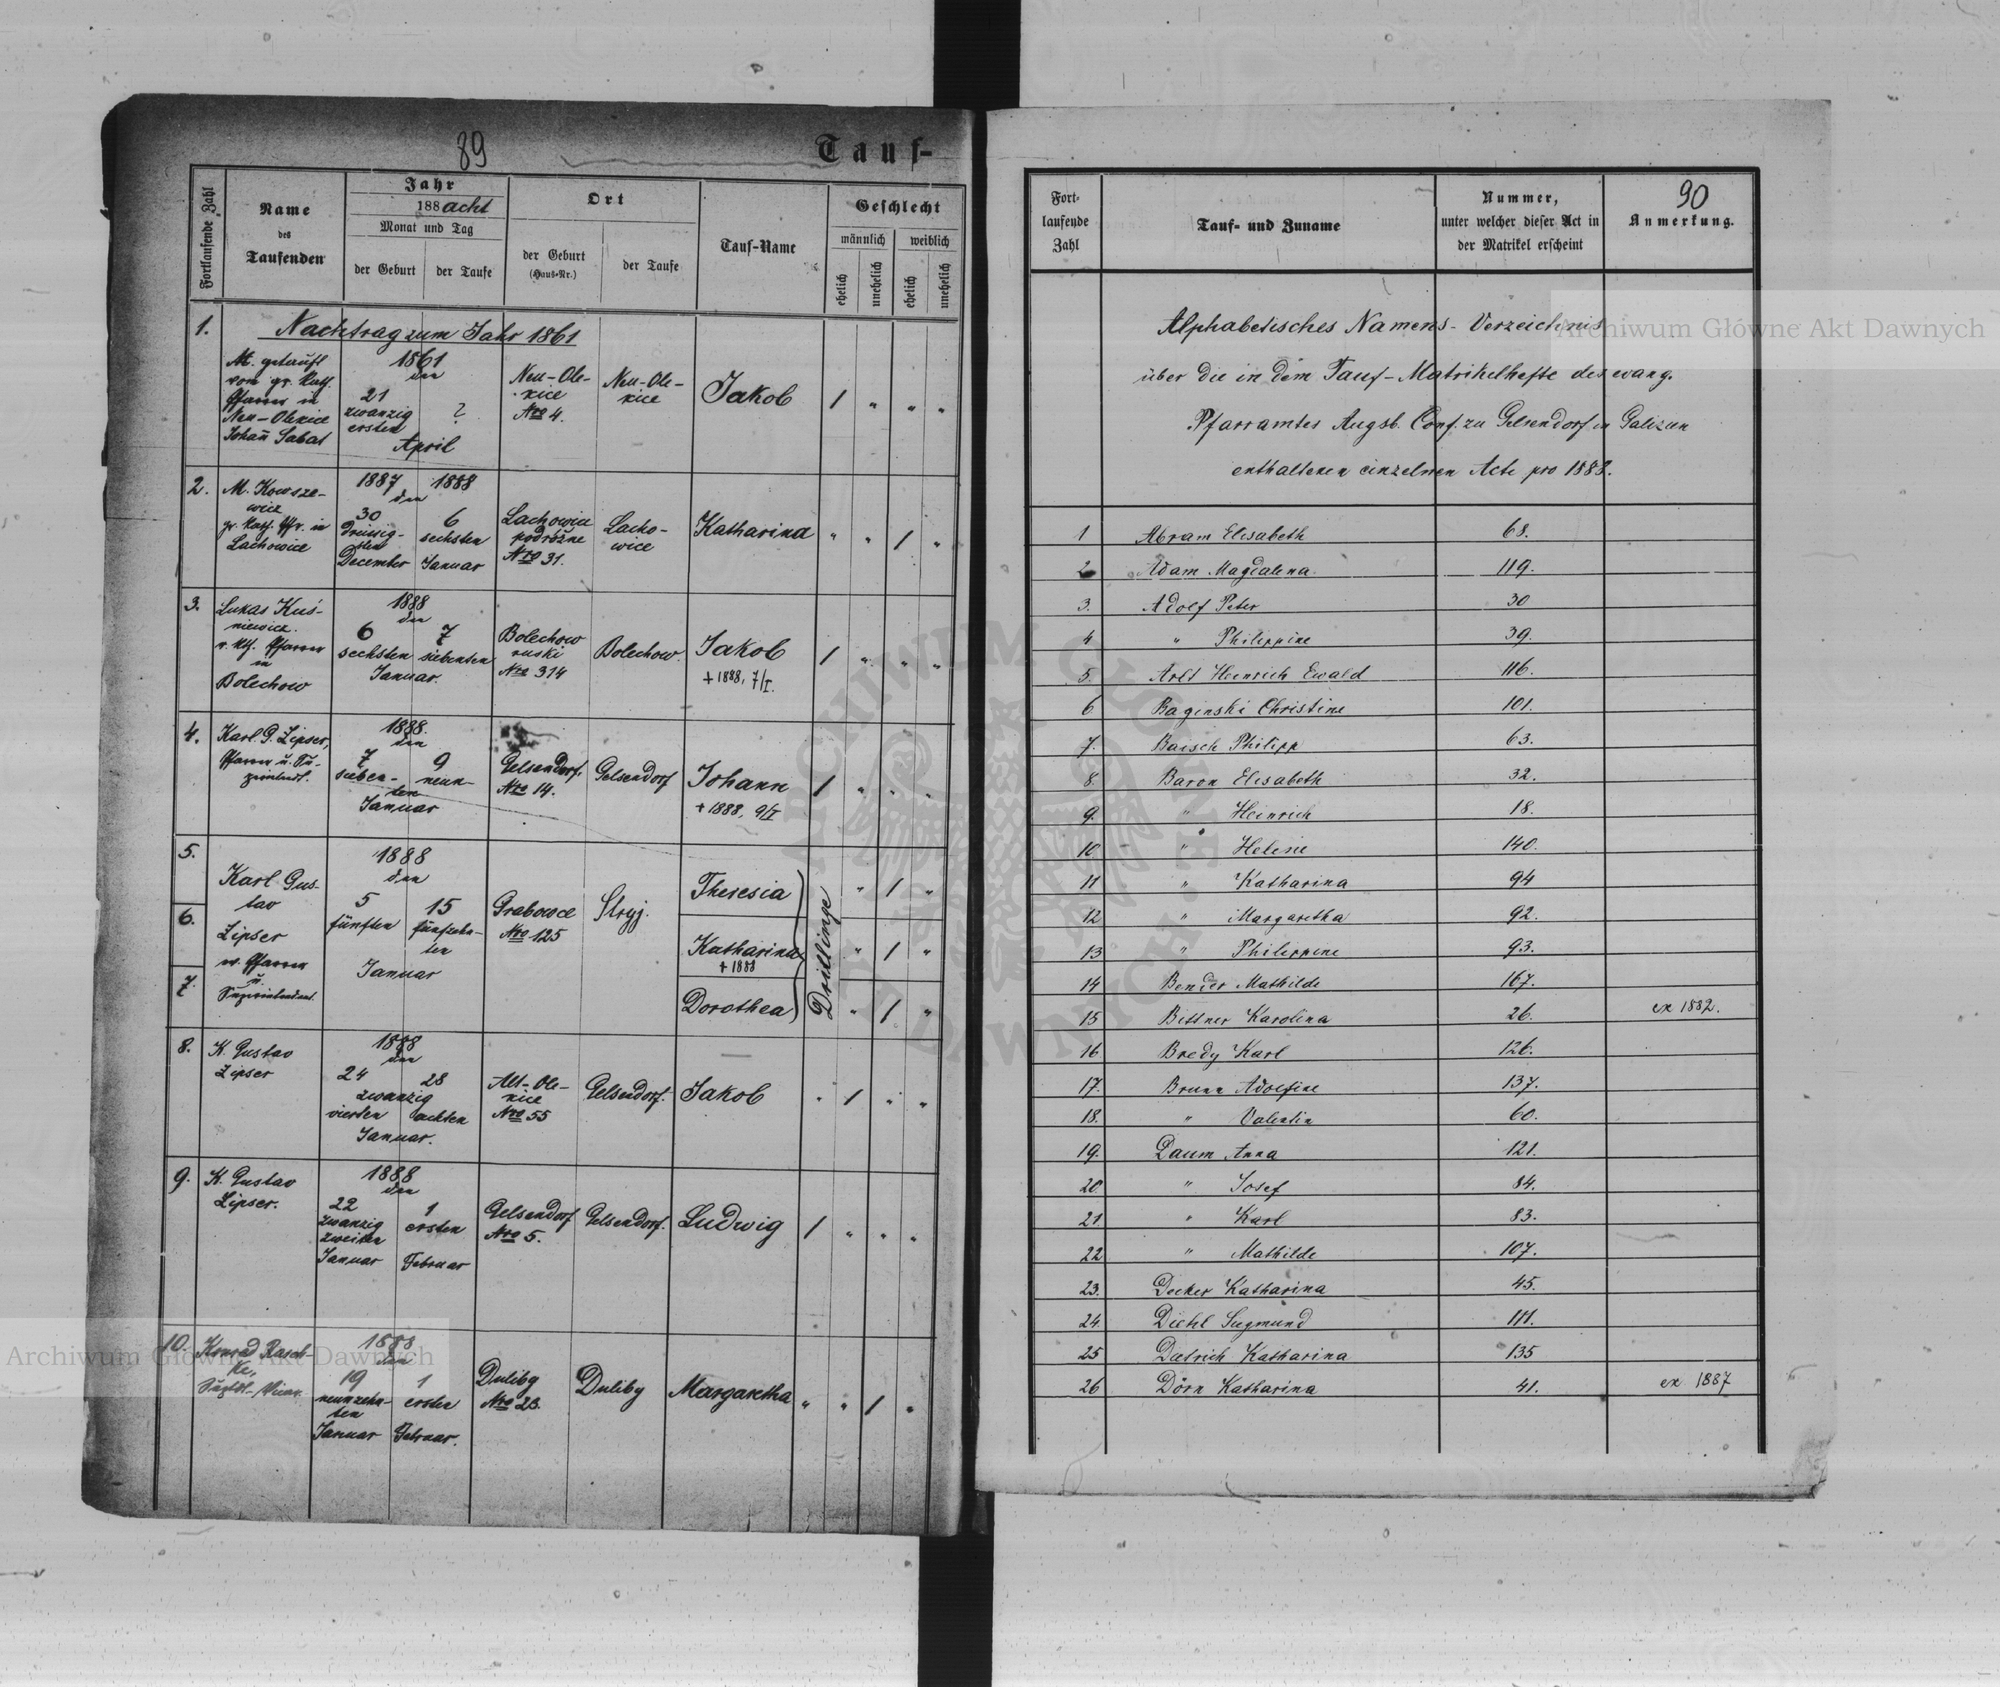 89
Tauf-
Fortlaufende Zahl
Name
des
Taufenden
Jahr
188 acht
Monat und Tag
der Geburt
der Taufe
Ort
der Geburt
(Haus-Nr.)
der Taufe
Tauf-Name
Geschlecht
männlich
weiblich
ehelich
unehelich
ehelich
unehelich
1.
Nachtrag zum Jahr 1861
At. getauft
vom gr. Kath.
Pfarrer in
Neu-Olexice
Johañ Sabat
1861
den
21
zwanzig
ersten
?
April
Neu-Ole-
xice
Nro 4.
Neu-Ole-
xice
Jakob
1 " " "
2.
M. Kowsze-
wicz
gr. Kath. Pfr. in
Lachowice
1887 1888
den
30 6
Dreissig-
sten
sechsten
December Januar
Lachowice
podrożne
Nro 31.
Lacho-
wice
Katharina
" " 1 "
3.
Lukas Kuś-
niewicz.
r. Kth. Pfarrer
in
Bolechow
1888
den
6 7
sechsten siebenten
Januar.
Bolechow
ruski
Nro 314
Bolechow.
Jakob
+ 1888, 7/I.
1 " " "
4.
Karl G. Lipser,
Pfarrer u. Su-
perintendt.
1888.
den
7 9
sieben- neun-
ten
Januar
Gelsendorf,
Nro 14.
Gelsendorf
Johann
+ 1888, 9/I
1 " " "
5.
6.
7.
Karl Gus-
tav
Lipser
ev. Pfarrer
u.
Superintendent.
1888
den
5 15
fünften fünfzehn-
ten
Januar
Grabowce
Nro 125
Stryj.
Theresia
Katharina
+ 1888
Dorothea
Drillinge
" 1 "
" 1 "
" 1 "
8.
K. Gustav
Lipser
1888
den
24 28
zwanzig
vierten achten
Januar.
Alt-Ole-
xice
Nro 55
Gelsendorf.
Jakob
" 1 " "
9.
K. Gustav
Lipser.
1888
den
22 1
zwanzig
zweiten
ersten
Januar Februar
Gelsendorf
Nro 5.
Gelsendorf.
Ludwig
1 " " "
10.
Konrad Rasch-
ke,
Suptdl.-Vicar.
1888
den
19 1
neunzehn-
ten
ersten
Januar Februar.
Duliby
Nro 23.
Duliby
Margaretha
" " 1 "
Fort-
laufende
Zahl
Tauf- und Zuname
Nummer,
unter welcher dieser Act in
der Matrikel erscheint
90
Anmerkung.
Alphabetisches Namens-Verzeichnis
über die in dem Tauf-Matrikelhefte des evang.
Pfarramtes Augsb. Conf. zu Gelsendorf in Galizien
enthaltenen einzelnen Acte pro 1888.
1 Abram Elisabeth 68.
2 Adam Magdalena 119.
3. Adolf Peter 30
4 " Philippine 39.
5. Arlt Heinrich Ewald 116.
6 Baginski Christine 101.
7. Baisch Philipp 63.
8. Baron Elisabeth 32.
9. " Heinrich 18.
10 " Helene 140.
11 " Katharina 94
12 " Margaretha 92.
13 " Philippine 93.
14 Bender Mathilde 167.
15 Bittner Karolina 26. ex 1882.
16 Bredy Karl 126.
17. Brunn Adolfine 137.
18. " Valentin 60.
19. Daum Anna 121.
20 " Josef 84.
21. " Karl 83.
22 " Mathilde 107.
23. Decker Katharina 45.
24. Diehl Sugmund 111.
25 Dietrich Katharina 135
26 Dörn Katharina 41. ex 1887
Archiwum Główne Akt Dawnych
Archiwum Główne Akt Dawnych
ARCHIWUM GŁÓWNE AKT DAWNYCH